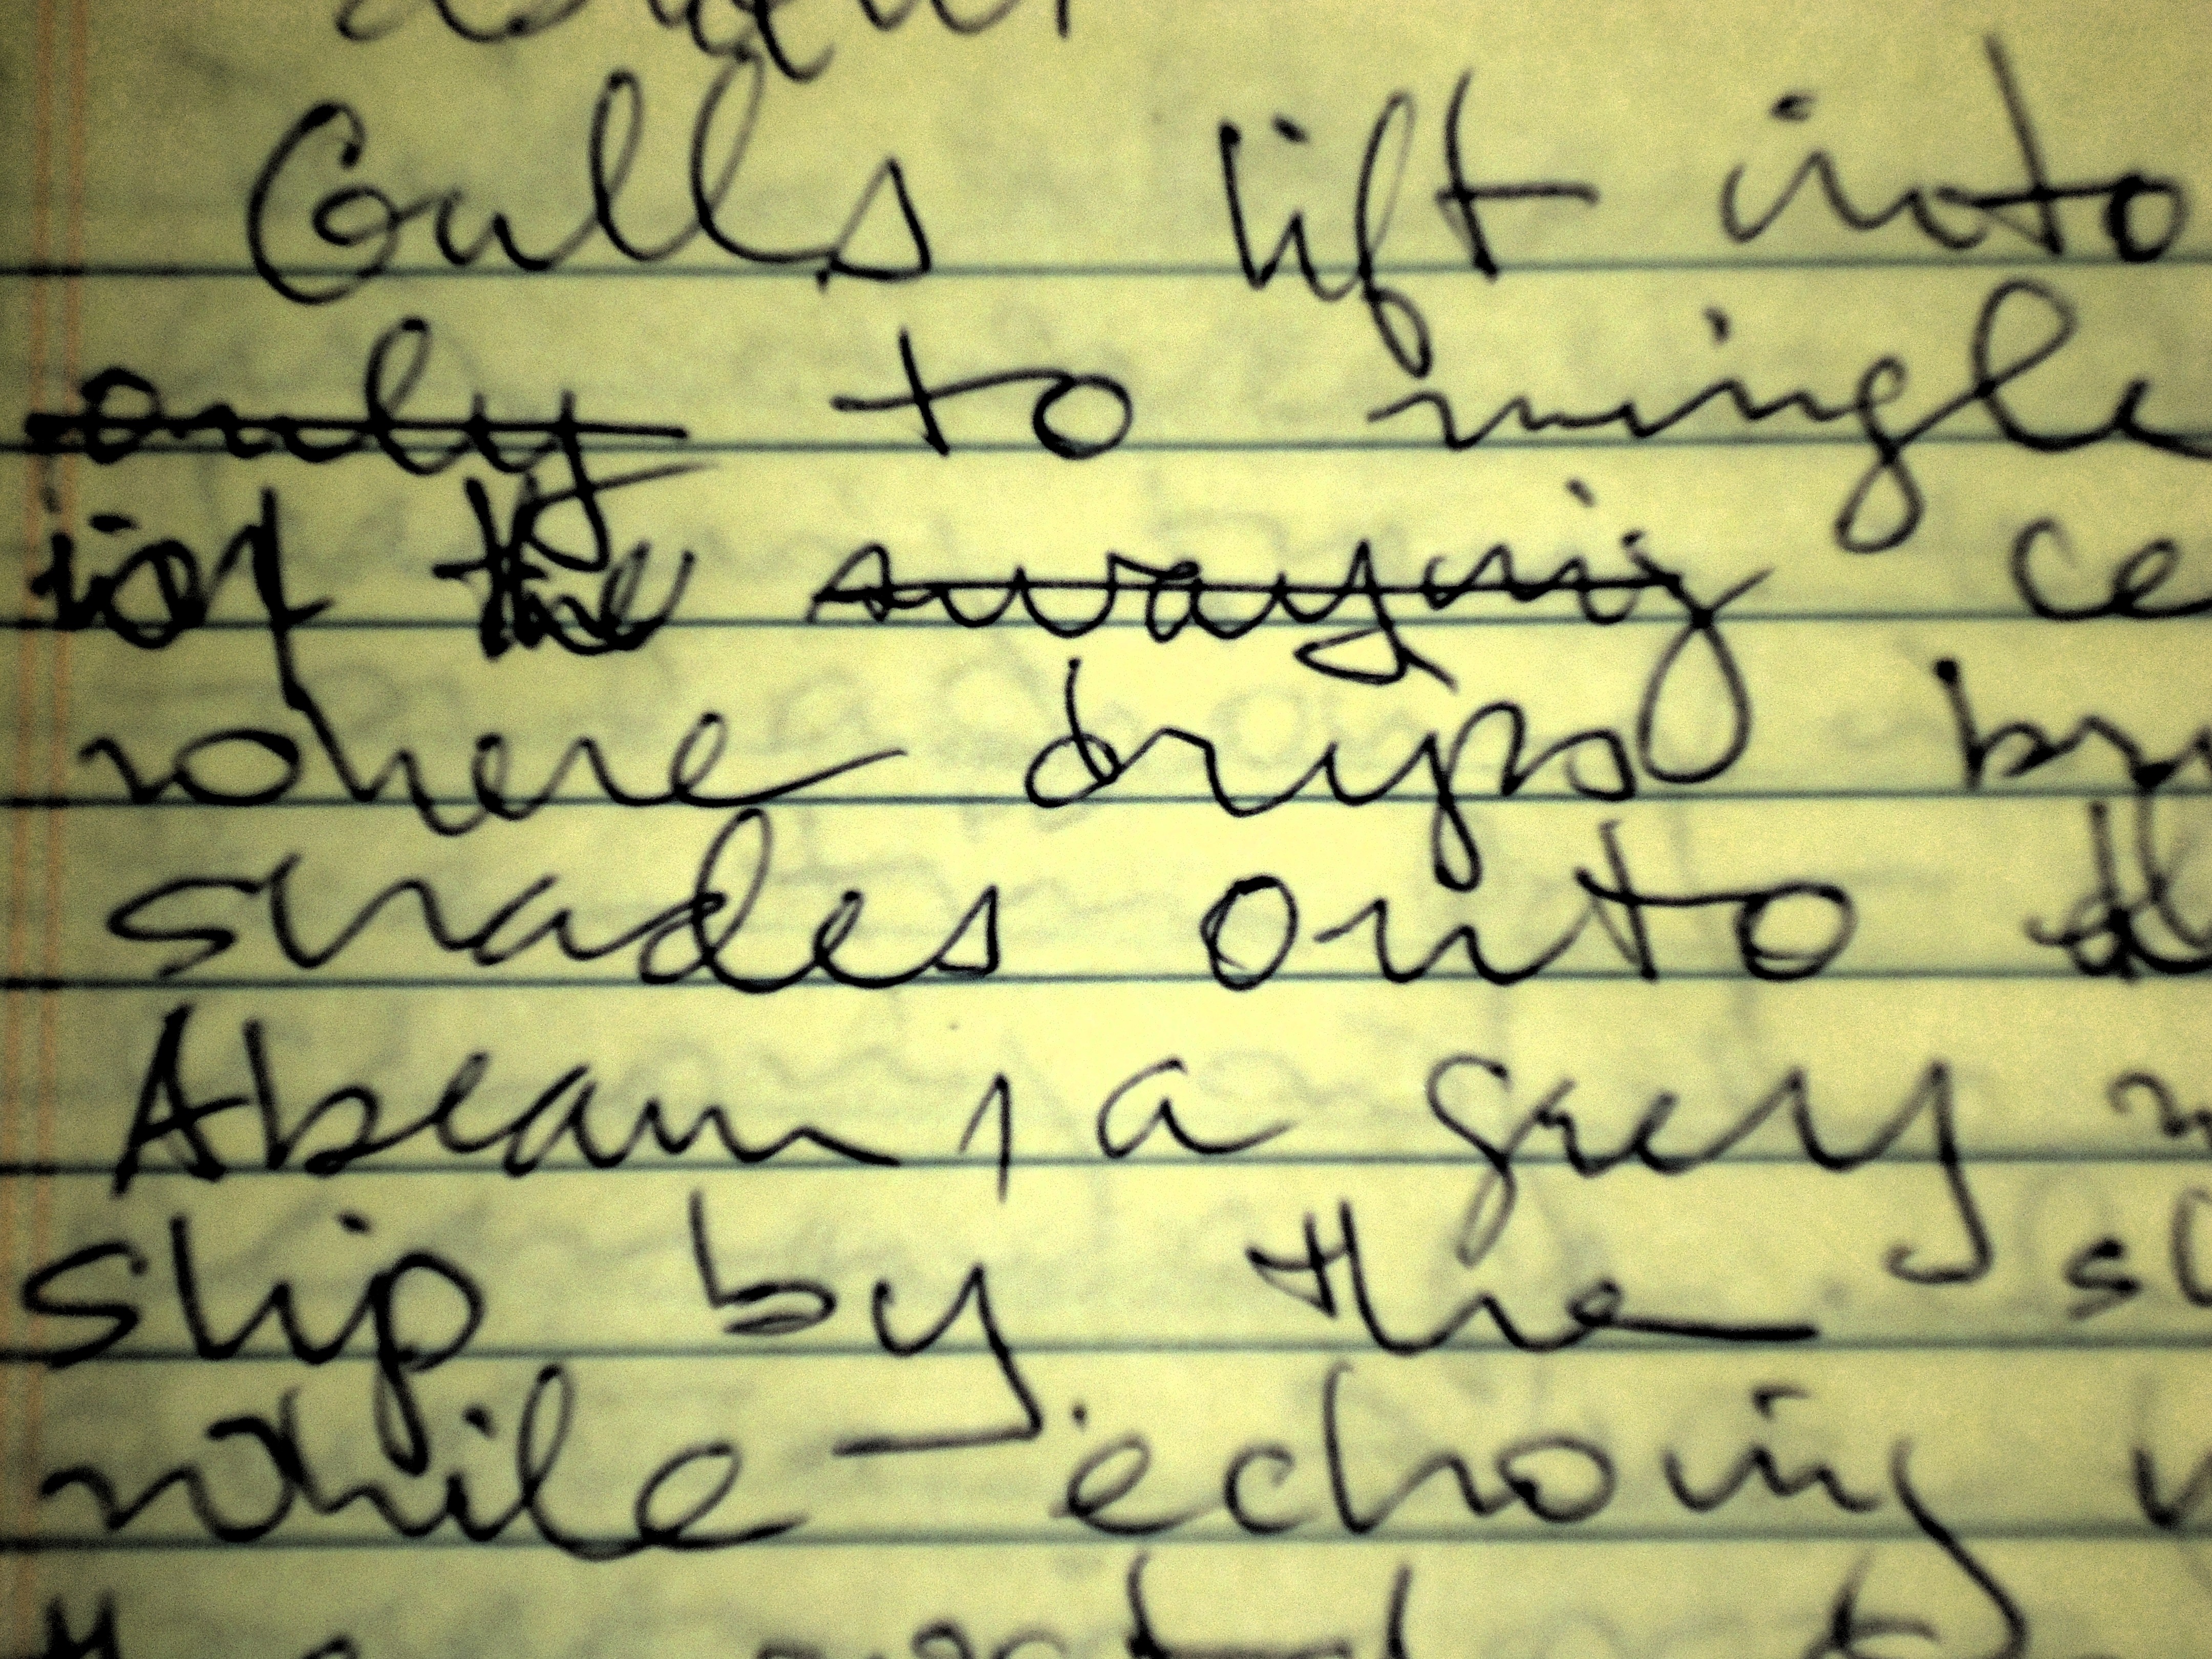 Gulls lift into
only to mingle
of the swaying ce
where drips br
shades onto
Abeam, a grey
ship by the sl
while echoing